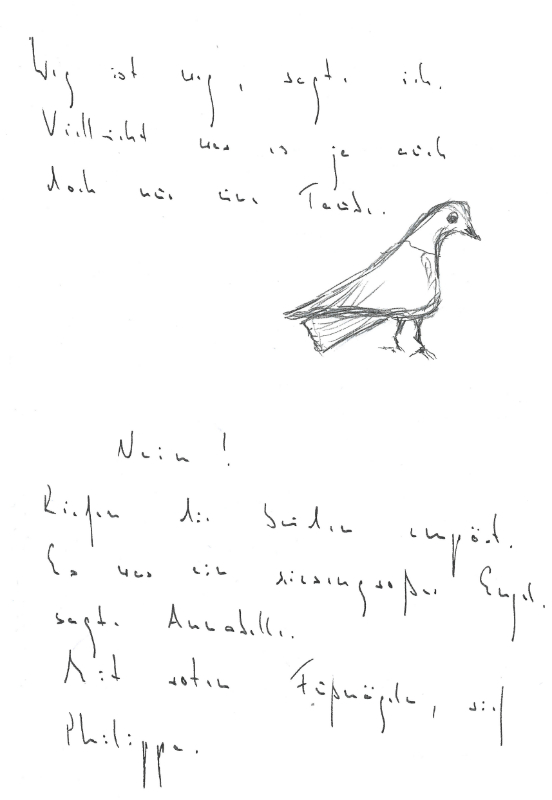 Weg ist weg, sagte ich.
Vielleicht war es ja auch
doch nur eine Taube.
Nein!
Riefen die beiden empört.
Es war ein riesengroßer Engel.
sagte Annabelle.
Mit roten Fußnägeln, rief
Philippa.